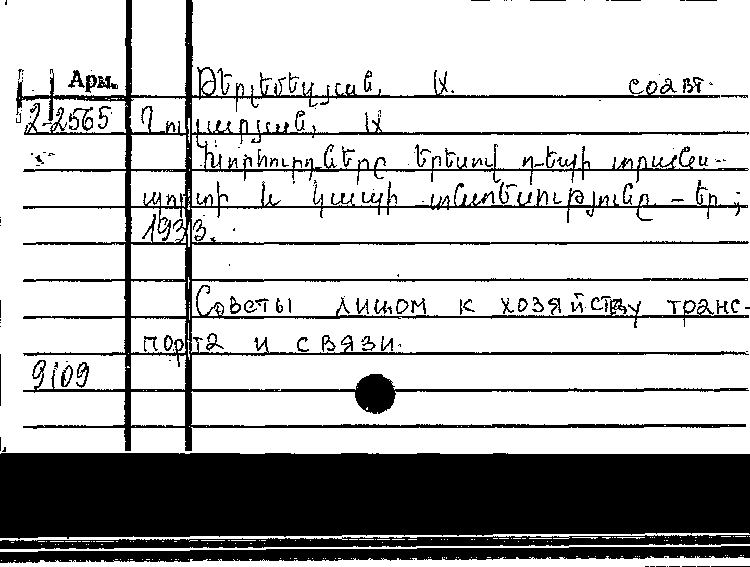 Арм. Թերլեմեզյան, Ա. соавт.
2-2565 Ղուլարյան, Ա
Խորհուրդները երեսով դեպի տրանս-
պորտի և կապի տնտեսությունը - Եր.;
1933.
Советы лицом к хозяйству транс-
порта и связи.
9109